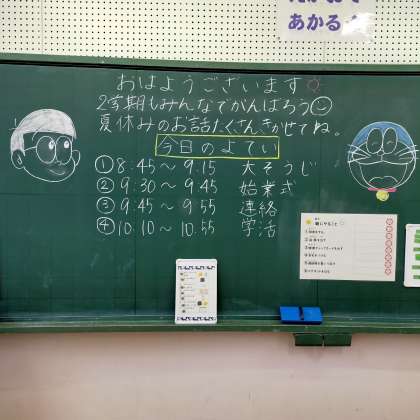 あかるく
おはようございます
2学期もみんなでがんばろう
夏休みのお話たくさんきかせてね。
今日のよてい
① 8:45〜9:15 大そうじ
② 9:30〜9:45 始業式
③ 9:45〜9:55 連絡
④ 10:10〜10:55 学活
朝にやること